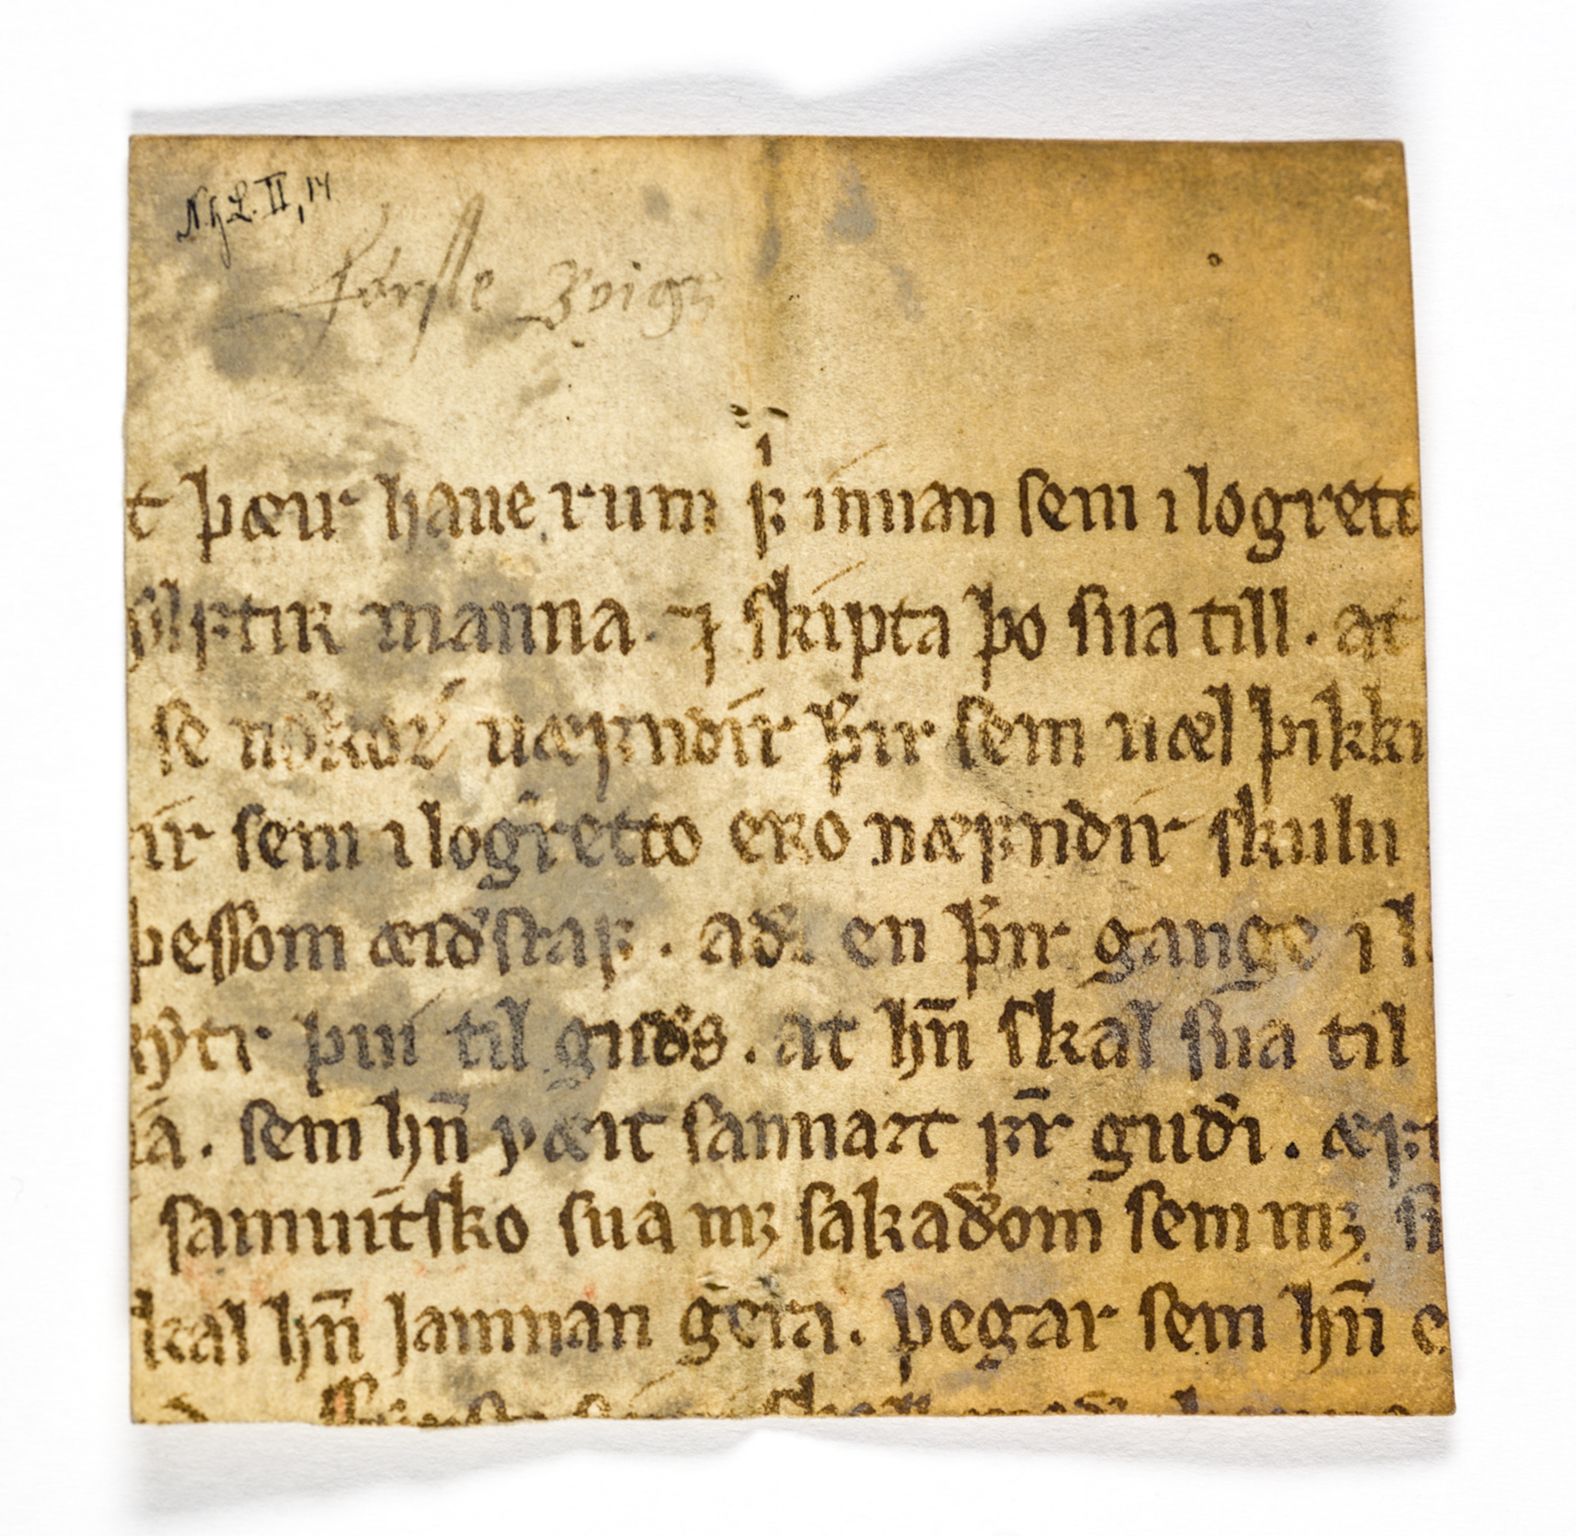 NgL. II, 14
første Voigt
t þæir haue rum fͥꝫ innan sem i logrett
ylftir manna. ⁊ skipta þo sua till. at
se nökorꝛ́ næfndir þ̄ir sem uæl þikki
ir sem i logr̄etto ero næfndir skulu
þessom æiðstaf. aðꝛ en þ̄ir gange i l
kytr þui til guðs. at hn̄ skal sua til
a. sem hn̄ væit sannazt fr̄ guði. æft
samuit̄sko sua mꝫ sakaðom sem mꝫ s
kal hn̄ iamnan gera. þegar sem hn̄ e